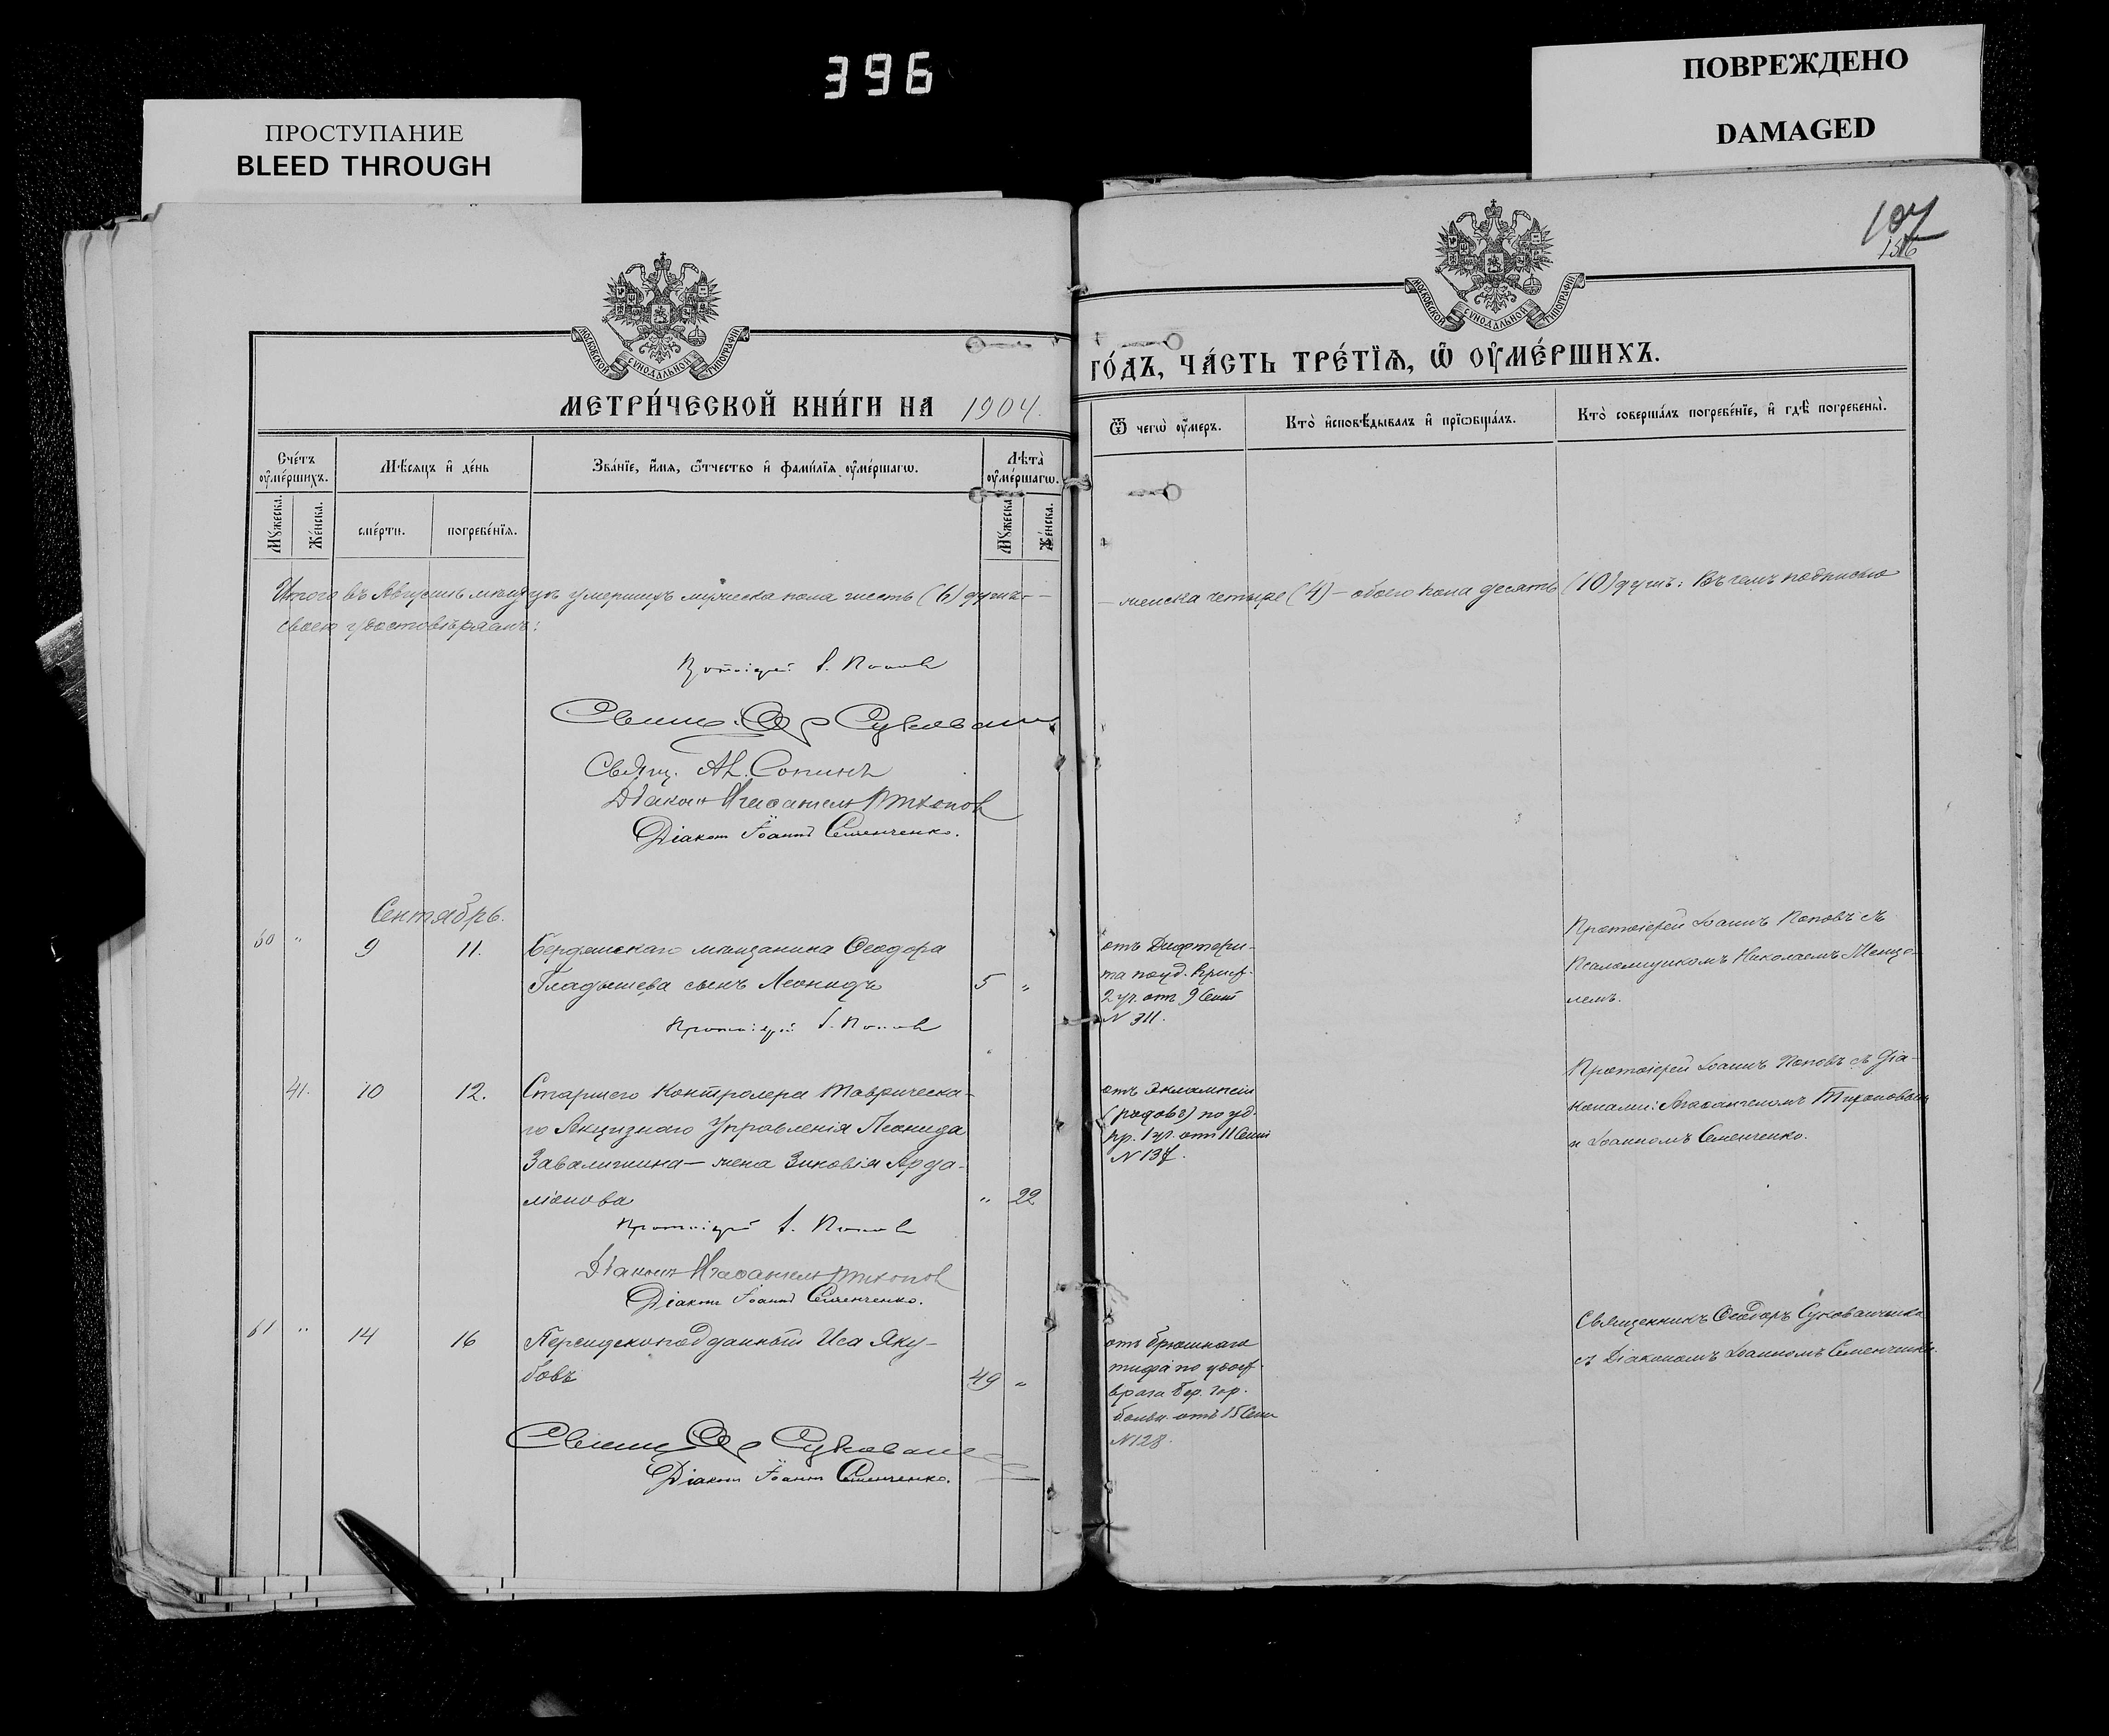 396
ПРОСТУПАНИЕ
BLEED THROUGH
ПОВРЕЖДЕНО
DAMAGED
107
МОСКОВСКОЙ СУНОДАЛЬНОЙ ТИПОГРАФІИ
МЕТРИ́ЧЕСКОЙ КНИ́ГИ НА 1904.
Сче́тъ ᲂу҆ме́ршихъ.
Мѣ́сяцъ и҆ де́нь
Зва́нїе, и҆́мя, ѻ҆́тчество и҆ фами́лїя ᲂу҆ме́ршагѡ.
Лѣта̀ ᲂу҆ме́ршагѡ.
Мꙋ́жеска.
Же́нска.
сме́рти.
погребе́нїя.
Мꙋ́жеска
Же́нска.
МОСКОВСКОЙ СУНОДАЛЬНОЙ ТИПОГРАФІИ
ГО́ДЪ, ЧА́СТЬ ТРЕ́ТЇѦ, Ѡ҆ ОУ҆МЕ́РШИХЪ.
Ѿ чегѡ̀ ᲂу҆́меръ.
Кто̀ и҆сповѣ́дывалъ и҆ прїѡбща́лъ.
Кто̀ соверша́лъ погребе́нїе, и҆ гдѣ̀ погребены̀.
Итого въ Августѣ мѣсяцѣ умершихъ мужеска пола шесть (6) душъ — женска четыре (4) — обоего пола десять (10) душъ: Въ чемъ подписью
своею удостовѣряемъ:
Протоіерей І. Поповъ
Свящ. Ѳ. Сукованч
Свящ. Ал. Сопинъ
Діаконъ Агаѳангелъ Тихоновъ
Діаконъ Іоаннъ Семенченко.
Сентябрь.
60 " 9 11. Бердянскаго мѣщанина Ѳеодора
Гладышева сынъ Леонидъ 5 "
Протоіерей І. Поповъ
отъ Дифтери-
та по уд.
2 уч. отъ 9 Сент
N 311.
Протоіерей Іоаннъ Поповъ съ
Псаломщикомъ Николаемъ
лемъ.
41. 10 12. Старшего Контролера Таврическа-
го Акцизнаго Управленія Леонида
Завалишина — жена Зиновія Арда-
ліонова " 22
Протоіерей І. Поповъ
Діаконъ Агаѳангелъ Тихоновъ
Діаконъ Іоаннъ Семенченко.
отъ эклампсіи
(родовъ) по уд.
вр. 1 уч. отъ 11 Сент
N 137.
Протоіерей Іоаннъ Поповъ съ Діа-
конами: Агаѳангеломъ Тихоновымъ
и Іоанномъ Семенченко.
61 " 14 16 Персидскоподданный Иса Яку-
бовъ 49 "
Діаконъ Іоаннъ Семенченко.
отъ брюшнаго
тифа по удост.
врача Бер. гор.
больн. отъ 15 Сент
N 128.
Священникъ Ѳеодоръ Сукованченко
съ Діакономъ Іоанномъ Семенченко.